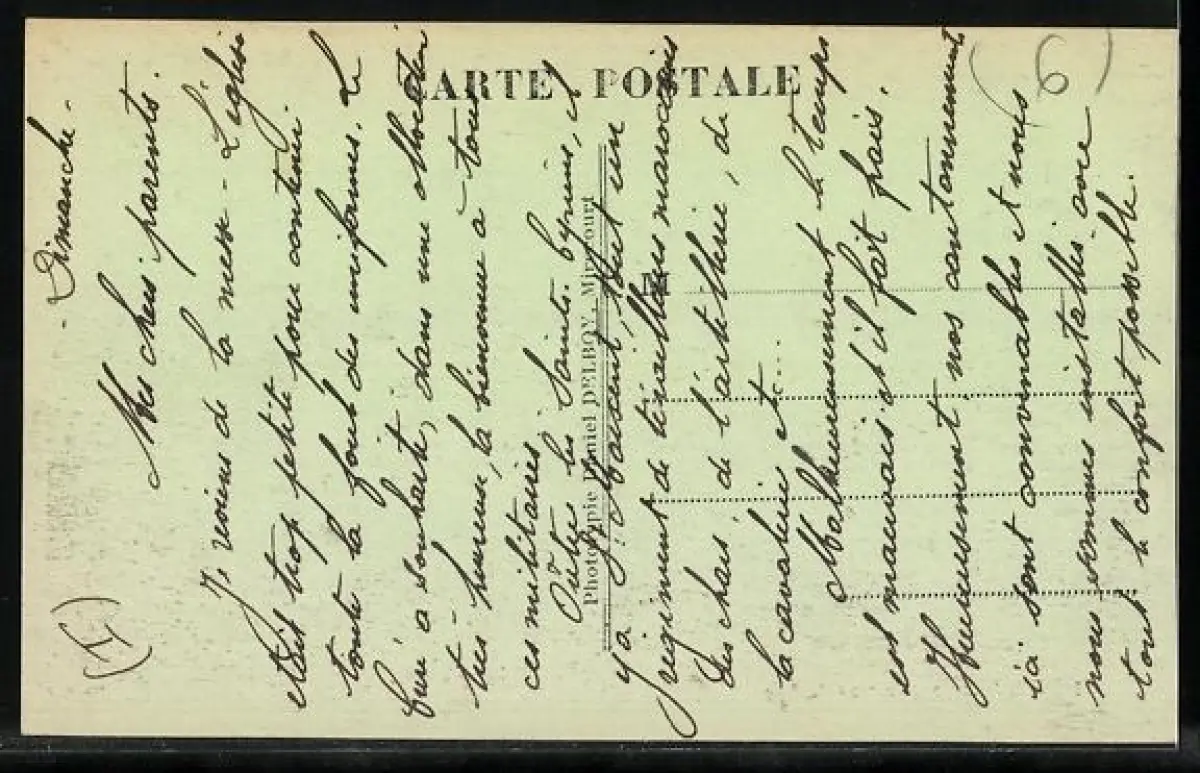 CARTE POSTALE
Photoypie Daniel DELBOY, Mirecourt
(I)
6
- Dimanche -
Mes chers parents.
Je reviens de la messe - L'église
était trop petite pour contenir
toute la foule des uniformes. Le
curé a souhaité, dans une
très heureuse, la bienvenue à tous
ces militaires.
Outre les Saints-Cyriens, il
y a un
régiment de tirailleurs marocains
des chars, de l'artillerie, de
la cavalerie etc...
Malheureusement le temps
est mauvais et il fait frais.
Heureusement nos cantonnements
ici sont convenables et nous
nous sommes installés avec
tout le confort possible.